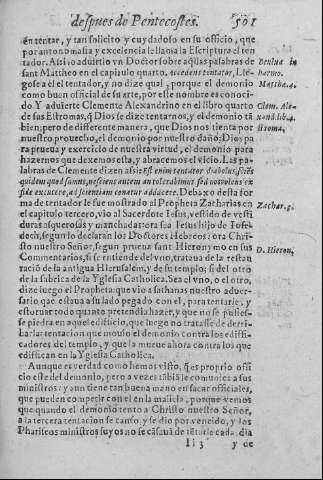 despues de Pentecostes. 501
en tentar, y tan solicito y cuydadoso en su officio, que
por antonomasia y excelencia le llama la Escriptura el ten
tador. Assi lo aduirtio vn Doctor sobre aq̃llas palabras de
sant Mattheo en el capitulo quarto. accedens tentator, Lle-
gose a el el tentador, y no dize qual, porque el demonio
como buen official de su arte, por este nombre es conoci-
do. Y aduierte Clemente Alexandrino en el libro quarto
de sus Estromas, q̃ Dios se dize tentarnos, y el demonio tã
bien; pero de differente manera, que Dios nos tienta por
nuestro prouecho, el demonio por nuestro daño; Dios pa
ra prueua y exercicio de nuestra virtud, el demonio para
hazernos que dexemos esta, y abracemos el vicio. Las pa-
labras de Clemente dizen assi:
quidem quod sumus, nescient autem an tolerabimus sed nos volens ex
fide excutere, ad sententiam conatur adducere. Debaxo desta for
ma de tentador le fue mostrado al Propheta Zacharias en
el capitulo tercero, vio al Sacerdote Iesus, vestido de vesti
duras asquerosas y manchadas: ora sea Iesus hijo de Iose-
dech, segun lo declaran los Doctores Hebreos: ora Chri-
sto nuestro Señor, segun prueua sant Hieronymo en sus
Commentarios, si se entiende del vno, trataua de la restau
raciõ de la antigua Hierusalem, y de su templo; si del otro
de la fabrica de la Yglesia Catholica. Sea el vno, o el otro,
dize luego el Propheta: que vio a sathanas nuestro aduer-
sario, que estaua a su lado pegado con el, para tentarle, y
estoruar todo quanto pretendia hazer, y que no se pusies-
se piedra en aquel edificio, que luego no tratasse de derri-
barla: tentacion que mouio el demonio contra los edifi-
cadores del templo, y que la mueue ahora contra los que
ediffican en la Yglesia Catholica.
Aunque es verdad como hemos visto, q̃ es proprio offi
cio este del demonio, pero a vezes tãbiẽ le comunica a sus
ministros: y aun tiene tan buena mano en sacar officiales,
que pueden competir con el en la malicia, porque vemos
que quando el demonio tento a Christo nuestro Señor,
a la tercera tentacion se canso, y se dio por vencido, y los
Phariseos ministros suyos no se cãsauã de tẽtarle cada dia
Ii 3 y de
harmo.
Matth. 4.
Clem. Ale-
xand. lib. 4.
stroma.
Zachar. 3.
D. Hieron.